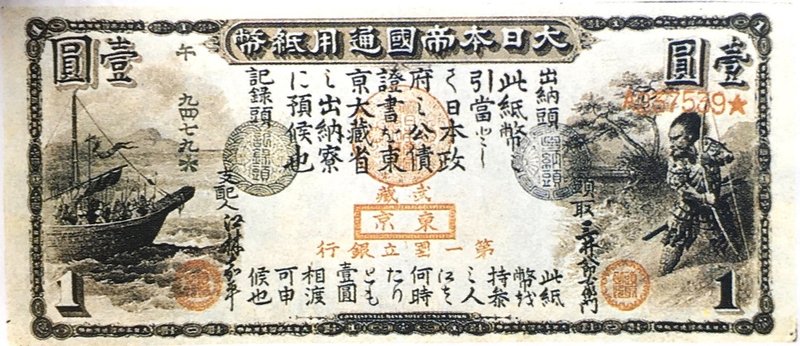 大日本帝國通用紙幣
壹圓
壹圓
A537539★
出納頭
此紙幣
引當トシ
て日本政
府之公債
證書を東
京大藏省
之出納寮
に預候也
記録頭
午
九四七九
出納頭
記録頭
頭取
三井
支配人
東京
第一國立銀行
此紙
幣持参
之人
何時
たりとも
壹圓
相渡
可申
候也
1
1
CONTINENTAL BANK NOTE CO. NEW YORK